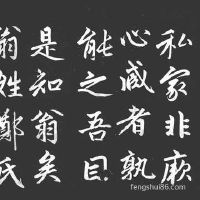 私家非厥
心臧者孰
能之吾
是知翁矣
翁姓鄭氏
fengshui86.com